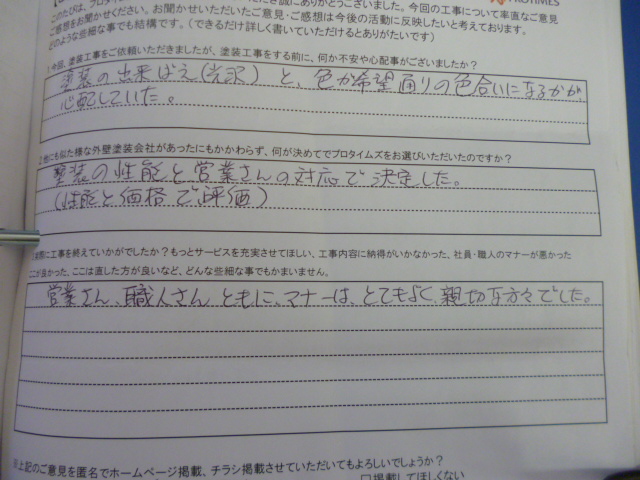 このたびは、プロタイムズ
誠にありがとうございました。今回の工事について率直なご意見
ご感想をお聞かせください。お聞かせいただいたご意見・ご感想は今後の活動に反映したいと考えております。
どのような些細な事でも結構です。（できるだけ詳しく書いていただけるとありがたいです）
PROTIMES
1.今回、塗装工事をご依頼いただきましたが、塗装工事をする前に、何か不安や心配事がございましたか？
塗装の出来ばえ(光沢)と、色が希望通りの色合いになるかが、
心配していた。
2.他にも似た様な外壁塗装会社があったにもかかわらず、何が決めてでプロタイムズをお選びいただいたのですか？
塗装の性能と営業さんの対応で決定した。
(性能と価格で、評価)
実際に工事を終えていかがでしたか？もっとサービスを充実させてほしい、工事内容に納得がいかなかった、社員・職人のマナーが悪かった
ここが良かった、ここは直した方が良いなど、どんな些細な事でもかまいません。
営業さん、職人さん ともに、マナーは、とてもよく、親切な方々でした。
※上記のご意見を匿名でホームページ掲載、チラシ掲載させていただいてもよろしいでしょうか？
□掲載してほしくない